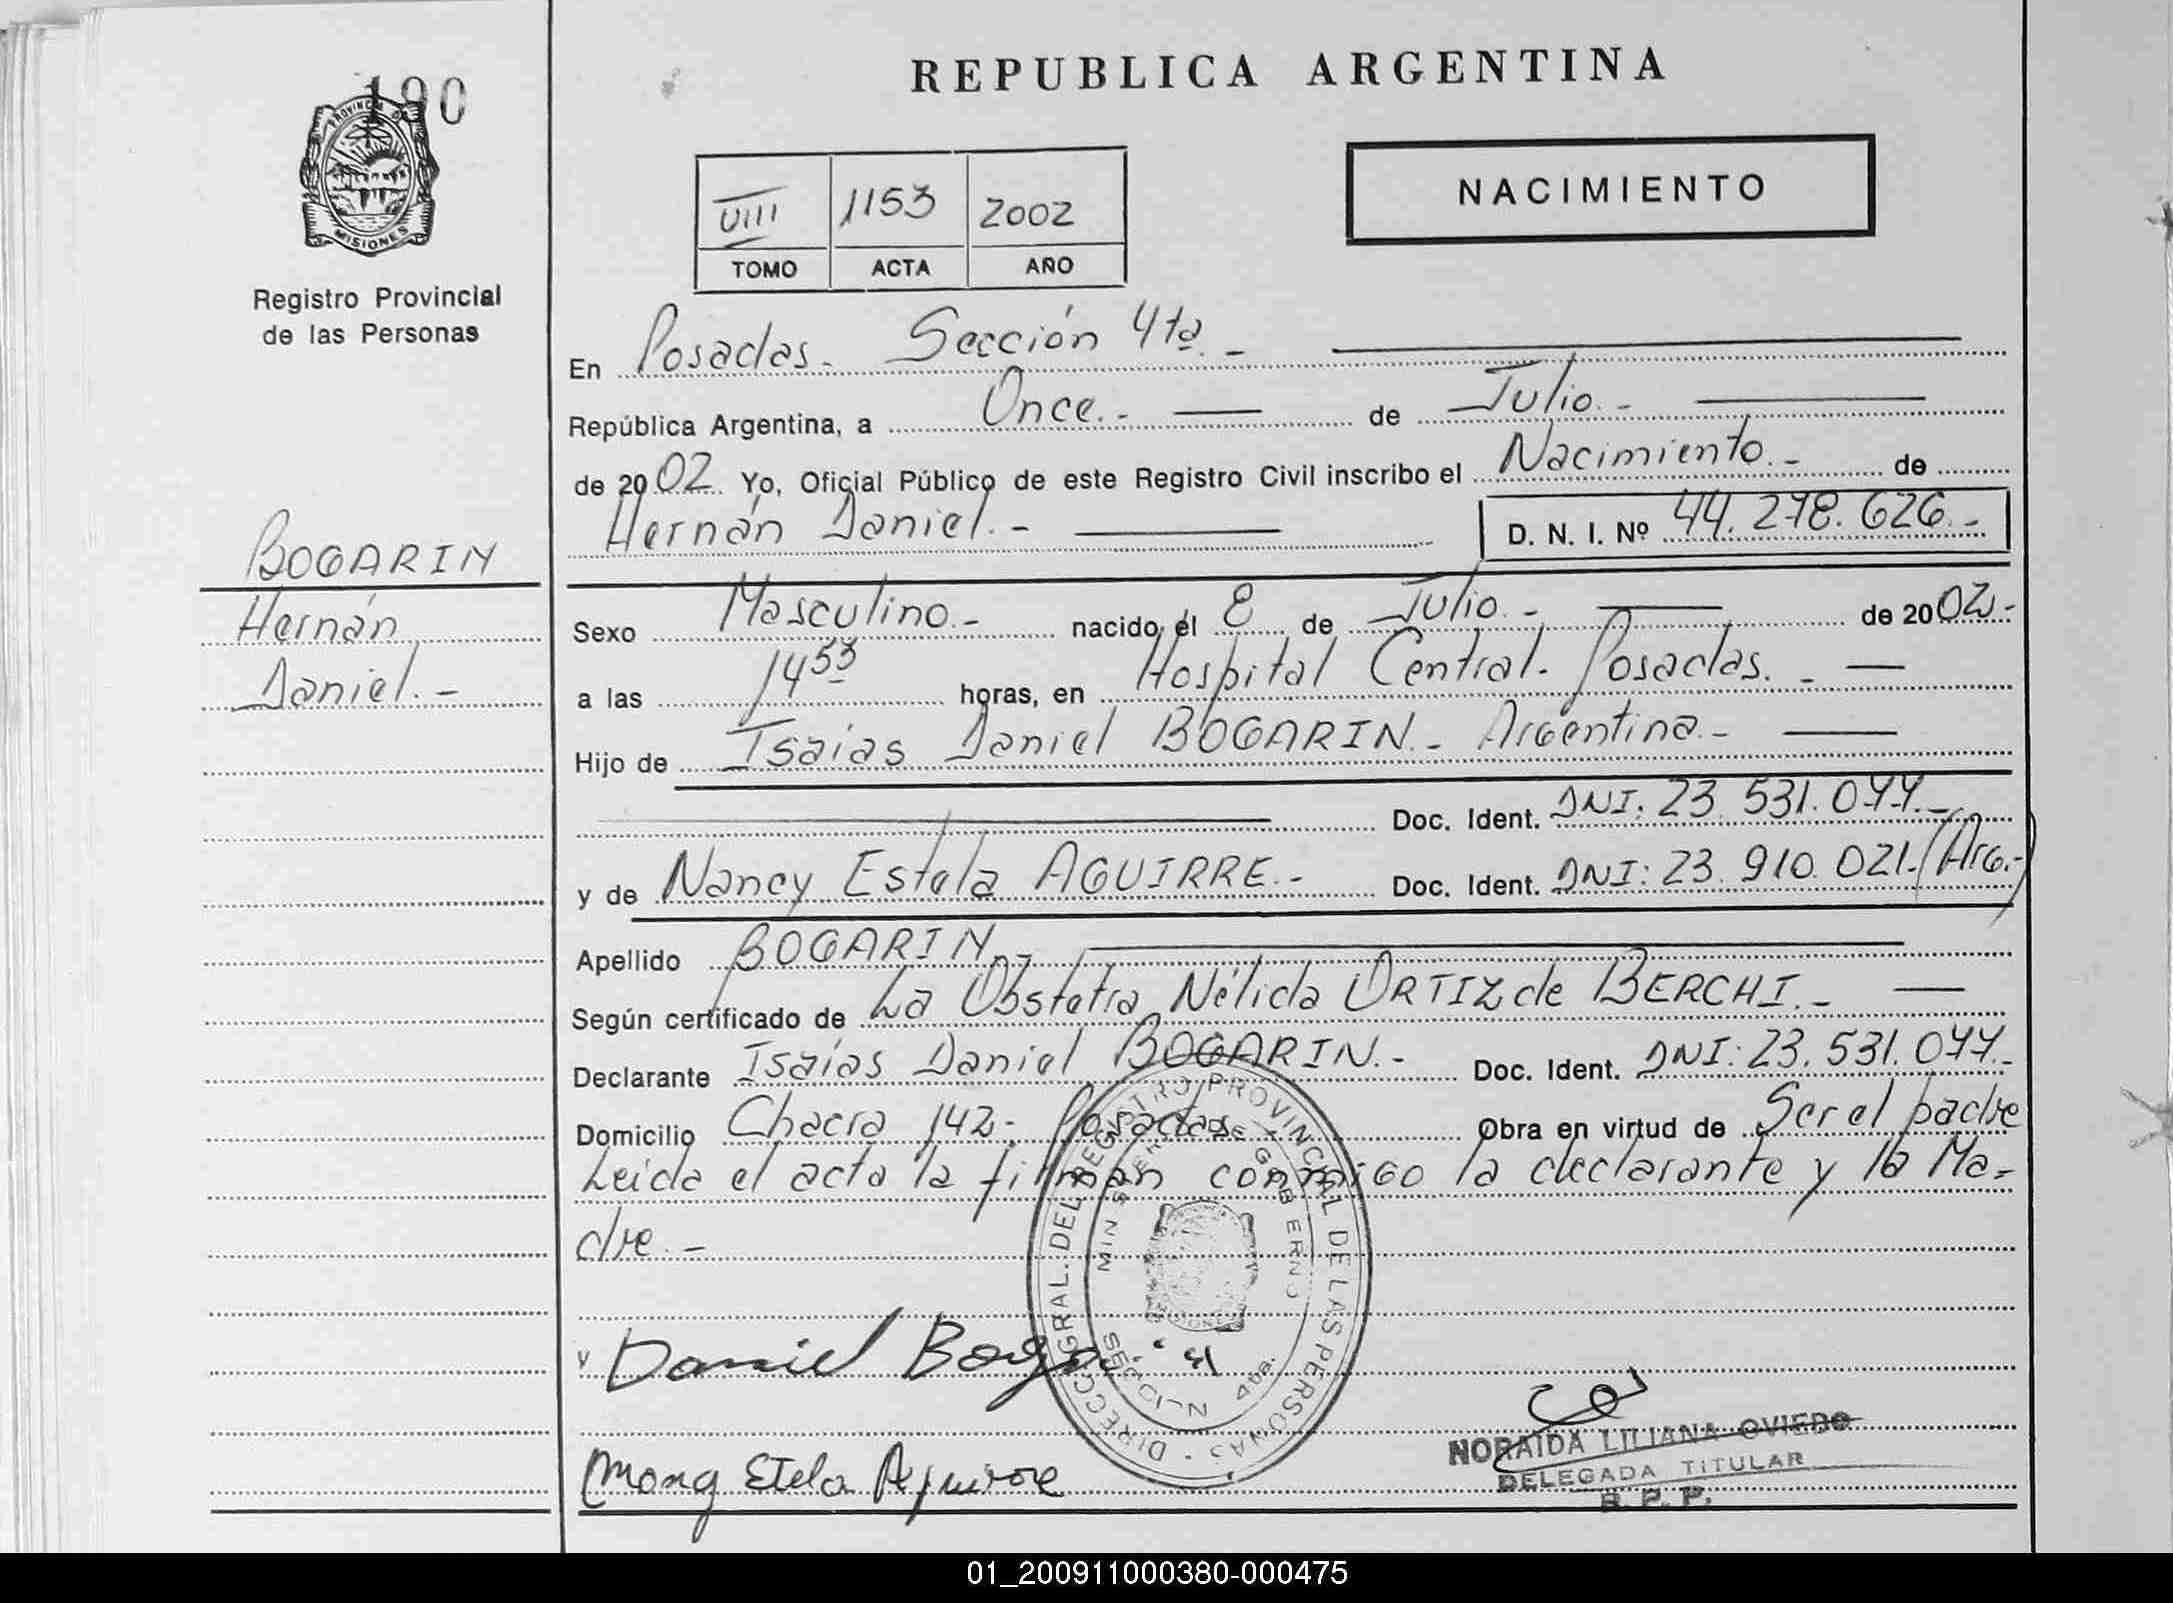 190
PROVINCIA DE
MISIONES
Registro Provincial
de las Personas
BOGARIN
Hernán
Daniel.-
REPUBLICA ARGENTINA
NACIMIENTO
VIII 1153 2002
TOMO ACTA AÑO
En Posadas. Sección 4ta.-
República Argentina, a Once.- de Julio.-
de 2002 Yo, Oficial Público de este Registro Civil inscribo el Nacimiento.- de
Hernán Daniel.- D. N. I. Nº 44.278.626.-
Sexo Masculino.- nacido él 8 de Julio.- de 2002.-
a las 14 53 horas, en Hospital Central. Posadas.-
Hijo de Isaías Daniel BOGARIN.- Argentina.-
Doc. Ident. DNI: 23.531.077.-
y de Nancy Estela AGUIRRE.- Doc. Ident. DNI: 23.910.021.(Arg.-)
Apellido BOGARIN.-
Según certificado de La Obstetra Nélida ORTIZ de BERCHI.-
Declarante Isaías Daniel BOGARIN.- Doc. Ident. DNI: 23.531.077.-
Domicilio Chacra 142.- Posadas Obra en virtud de Ser el padre
Leida el acta la firman conmigo la declarante y la Ma-
dre.-
DIRECC. GRAL. DEL REGISTRO PROVINCIAL DE LAS PERSONAS
MINISTERIO DE GOBIERNO
SECCION 4ta.
Daniel Bogarin
Estela Aguirre
NORAIDA LILIANA OVIEDO
DELEGADA TITULAR
R. P. P.
01_200911000380-000475